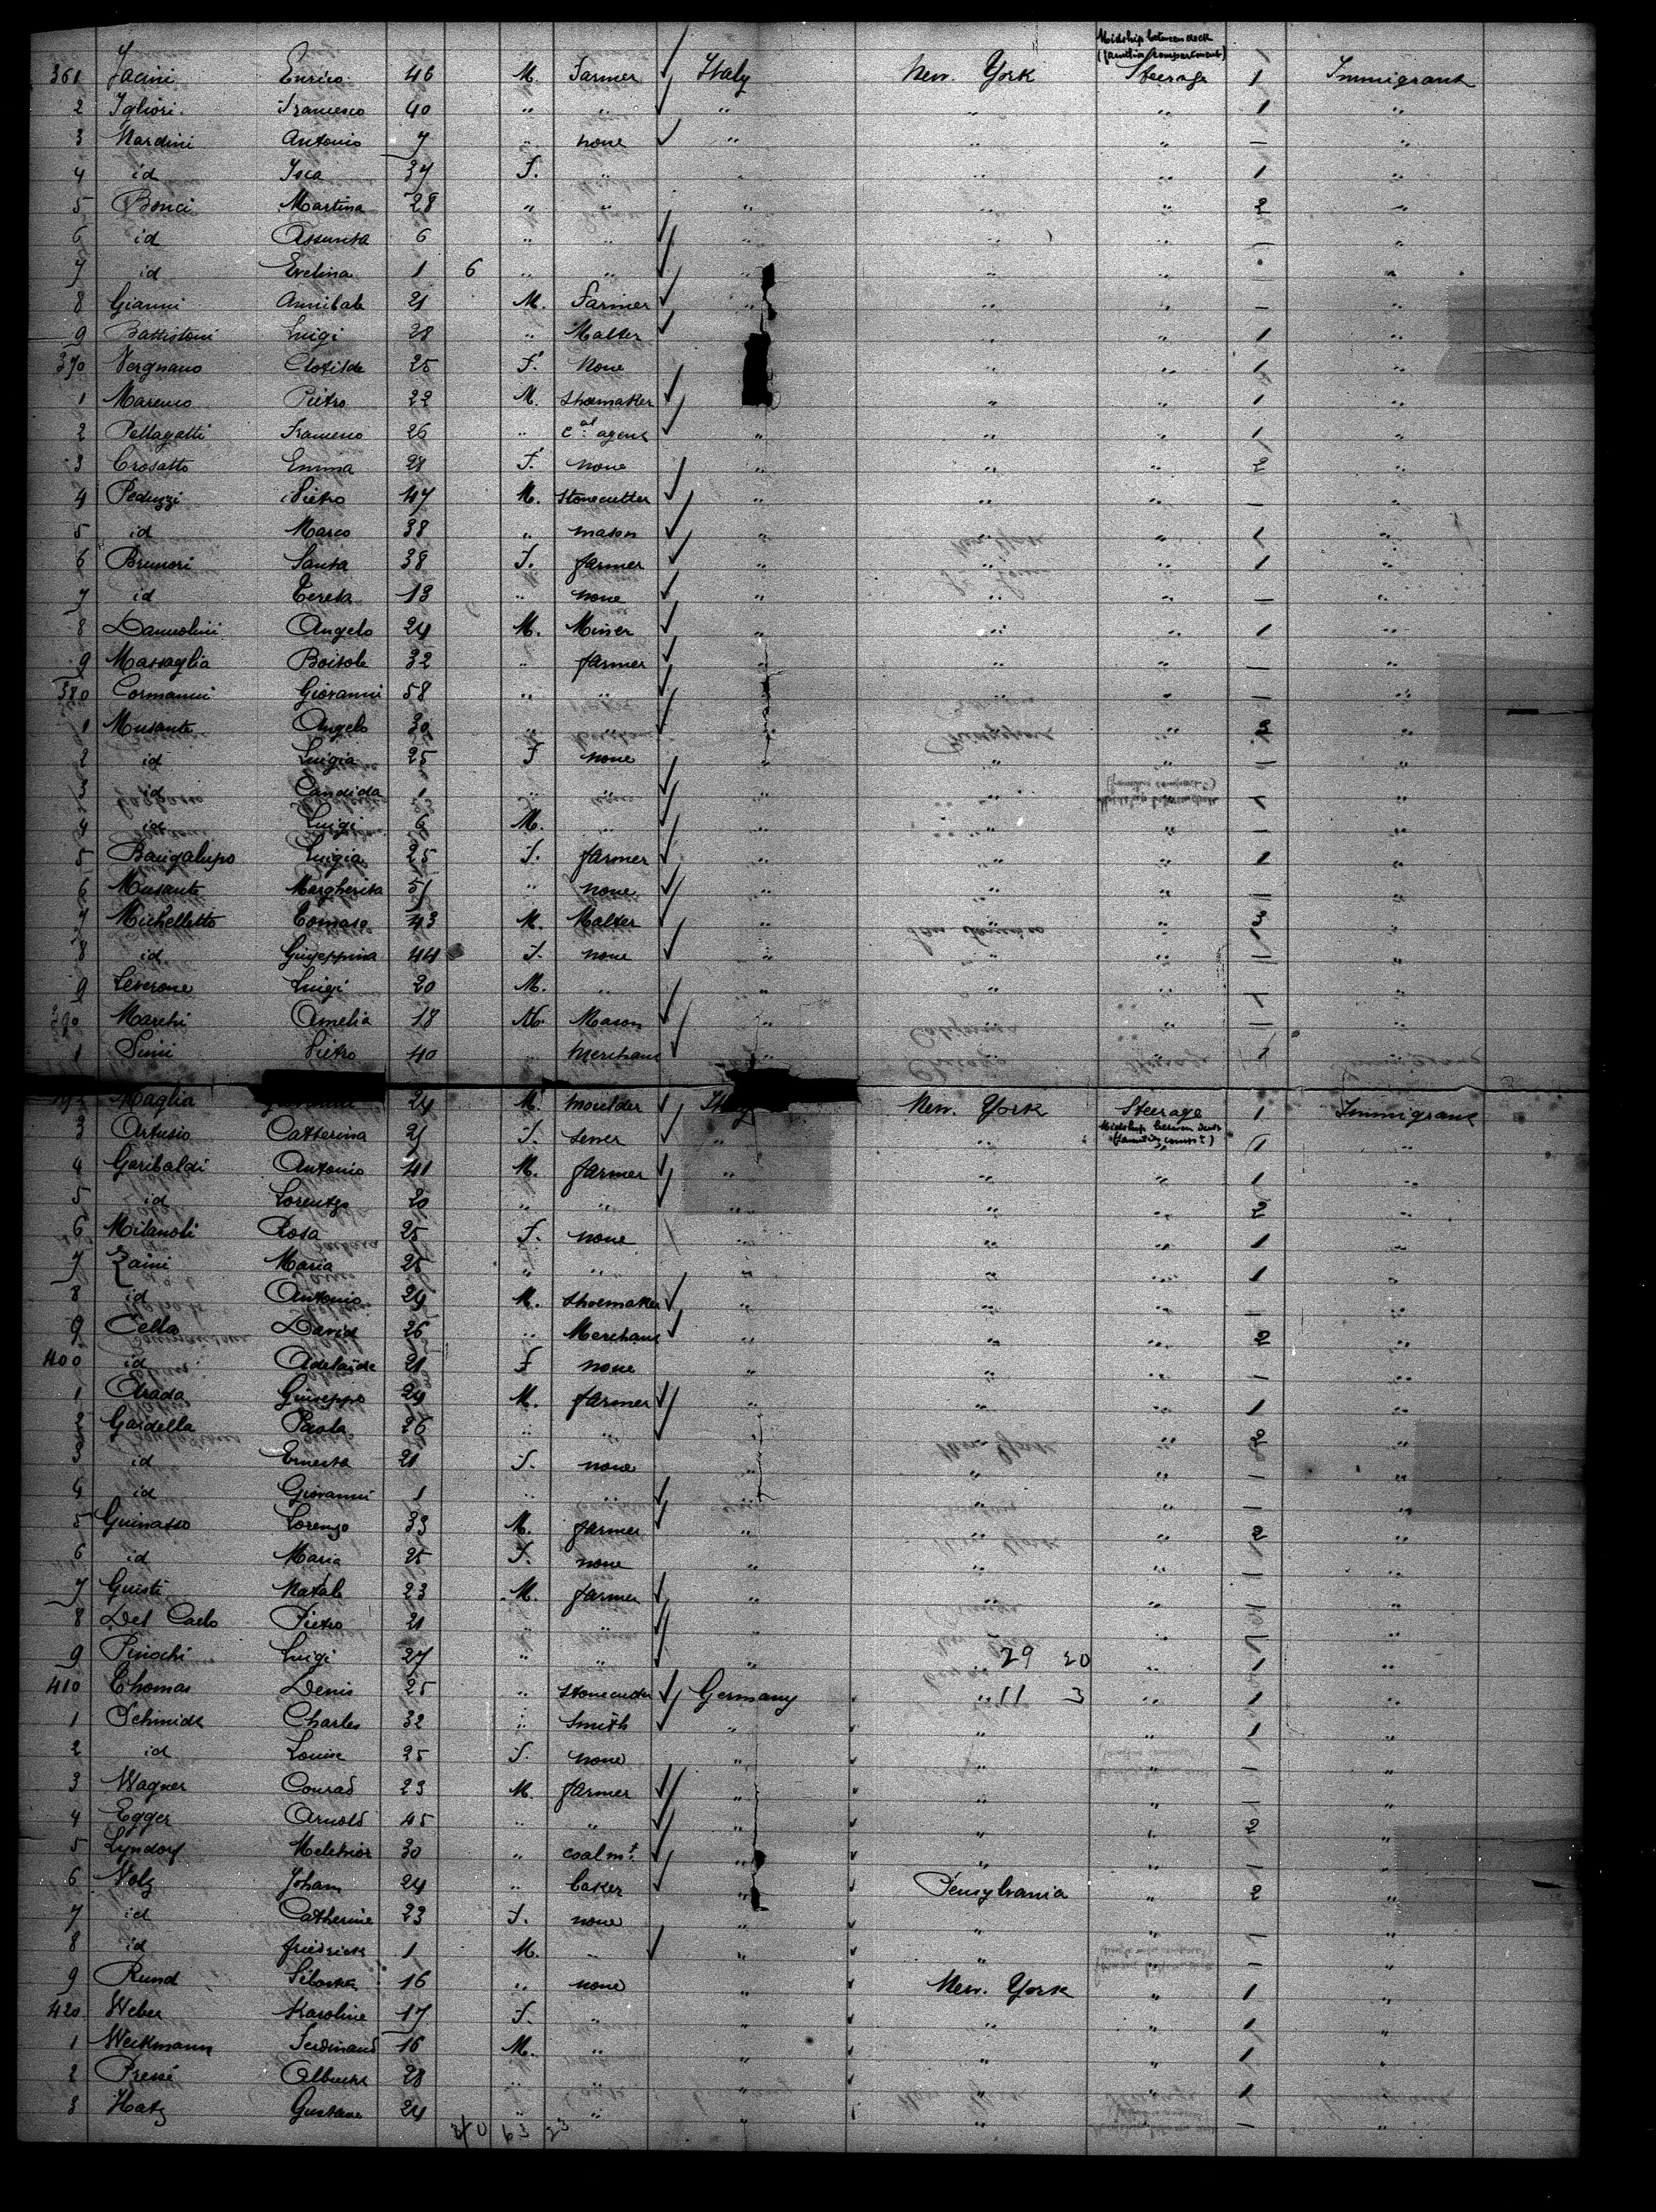 Midship between deck
(families compartment)
361 Jacini Enrico 46 M. Farmer Italy New. York Steerage 1 Immigrant
2 Igliori Francesco 40 " " " " " 1 "
3 Nardini Antonio 7 " none " " " — "
4 id Isca 37 F. " " " " 1 "
5 Bonci Martina 28 " " " " " 2 "
6 id Assunta 6 " " " " " — "
7 id Evelina 1 6 " " " " " "
8 Gianni Annibale 21 M. Farmer " " " — "
9 Battistoni Luigi 28 " Malter " " 1 "
370 Vergnano Clotilde 25 F. None " " 1 "
1 Marenco Pietro 22 M. Shoemaker " " 1 "
2 Pellagatti Francesco 26 " cal agent " " " 1 "
3 Crosatto Emma 28 F. none " " " 2 "
4 Peduzzi Pietro 47 M. Stonecutter " " " — "
5 id Marco 38 " mason " " " 1 "
6 Brunori Santa 38 F. farmer " " " 1 "
7 id Teresa 13 " none " " " — "
8 Angelo 24 M. Miner " " " 1 "
9 Massaglia 32 " farmer " " " — "
380 Cormanni Giovanni 58 " " " " — "
1 Musante Angelo 30 " " " " 3 "
2 id Luigia 25 F none " " " — "
3 id Candida 1 " " " " " — "
4 id Luigi 6 M. " " " " — "
5 Luigia 25 F. farmer " " " 1 "
6 Musante Margherita 51 " none " " " — "
7 Michelletto Tomaso 43 M. Malter " " 3 "
8 id Giuseppina 44 F. none " " " — "
9 Leverone Luigi 20 M. " " " " — "
390 Marchi Amelia 18 M. Mason " " " — "
1 Pietro 40 " Merchant " " " 1 "
392 Maglia 24 M. moulder Italy New. York Steerage 1 Immigrant
Midship between deck
3 Artusio Catterina 21 F. " " " 1 "
4 Garibaldi Antonio 41 M. farmer " " " 1 "
5 id Lorentzo 20 " " " " " 2 "
6 Rosa 25 F. none " " " 1 "
7 Zaini Maria 25 " " " " " 1 "
8 id Antonio 29 M. Shoemaker " " " — "
9 Cella David 26 " Merchant " " " 2 "
400 id Adelaide 21 F none " " " — "
1 Giuseppe 24 M. farmer " " " 1 "
2 Gardella Paolo 26 " " " " 2 "
3 id Ernesta 21 F. none " " " — "
4 id Giovanni 1 " " " " — "
5 Guinasso Lorenzo 33 M. farmer " " " 2 "
6 id Maria 25 F. none " " " — "
7 Giusti Natale 23 M. farmer " " " — "
8 Del Carlo Pietro 21 " " " " —
9 Pinochi Luigi 27 " " " 29 20 " 1 "
410 Thomas Denis 25 " Stonecutter Germany " 11 3 " 1 "
1 Schmidt Charles 32 " Smith " " " 1 "
2 id Louise 25 F. none " " " — "
3 Wagner Conrad 23 M. farmer " " " — "
4 Egger Arnold 45 " " " " " 2 "
5 Lyndorf Melchior 30 " " " " — "
6 Volz Johann 24 " baker " Pensylvania " 2 "
7 id Catherine 23 F. none " " " — "
8 id friedrich 1 M. " " " — "
9 Rund 16 " none " New. York " 1 "
420 Weber Karoline 17 F. " " " " 1 "
1 Weckmann Ferdinand 16 M. " " " " 1 "
2 28 " " " " " 1 "
3 Hatz Gustave 24 " " " " — "
63 23